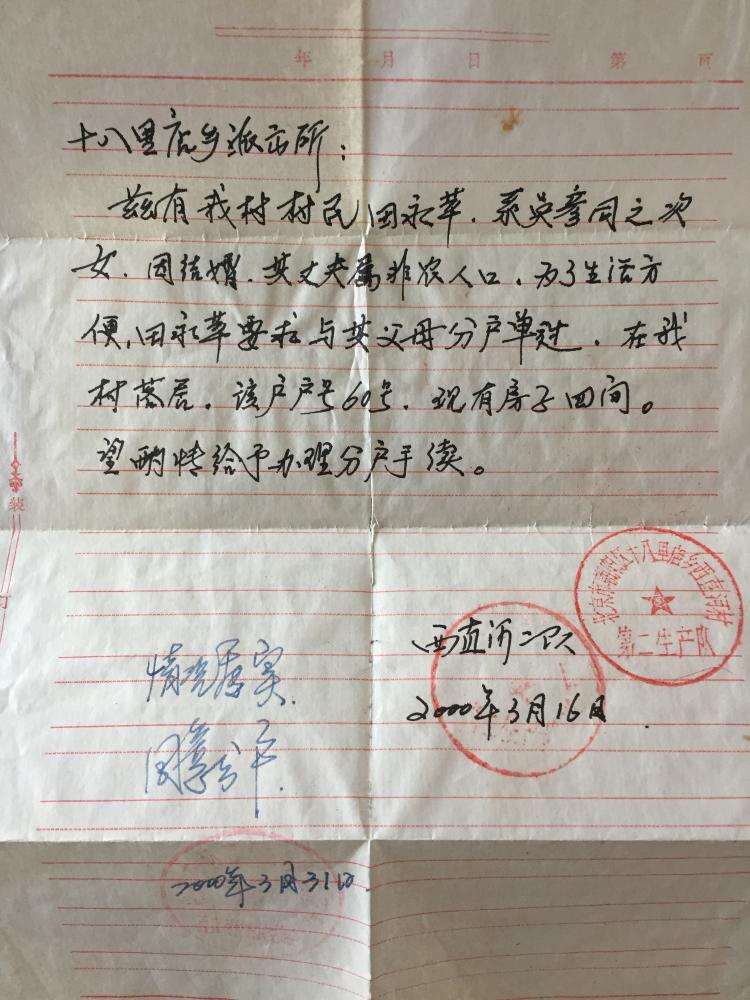 年 月 日 第 页
十八里店乡派出所：
兹有我村村民田永苹．系吴彦同之次
女．因结婚．其丈夫属非农人口．为了生活方
便，田永苹要求与其父母分户单过．在我
村落居．该户户号60号．现有房子四间。
望酌情给予办理分户手续。
装
北京市朝阳区十八里店乡西直河村
第二生产队
西直河二队
2000年3月16日
情况属实．
2000年3月31日．